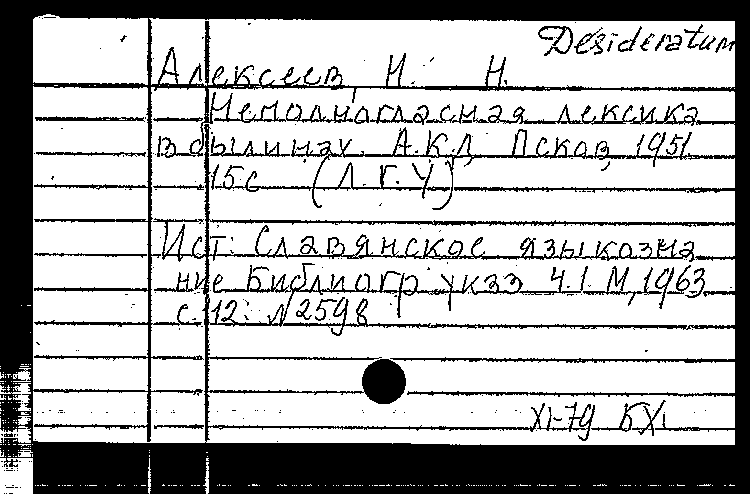 Desideratum
Алексеев, Н. Н.
Неполногласная лексика
в былинах. А.К.Д, Псков, 1951.
15с (Л.Г.У)
Ист: Славянское языкозна
ние Библиогр указ Ч.1. М, 1963.
с. 112: №2598
XI-79 БХ